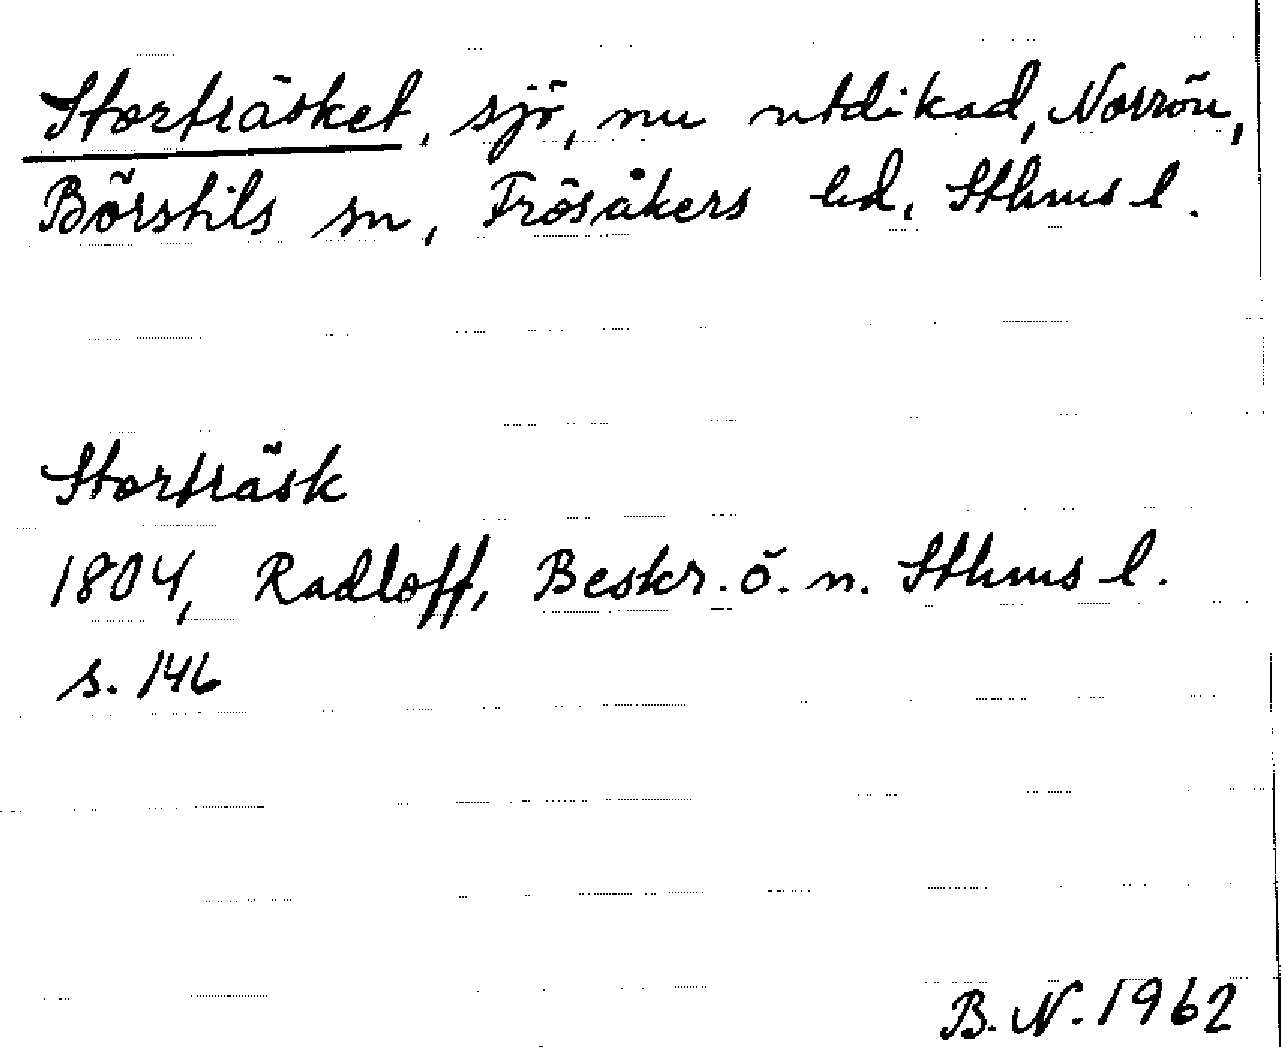 Storträsket, sjö, nu utdikad, Norrön,
Börstils sn, Frösåkers hd, Sthms l.
Storträsk
1804, Radloff, Beskr. ö. n. Sthms l.
s. 146
B. N. 1962